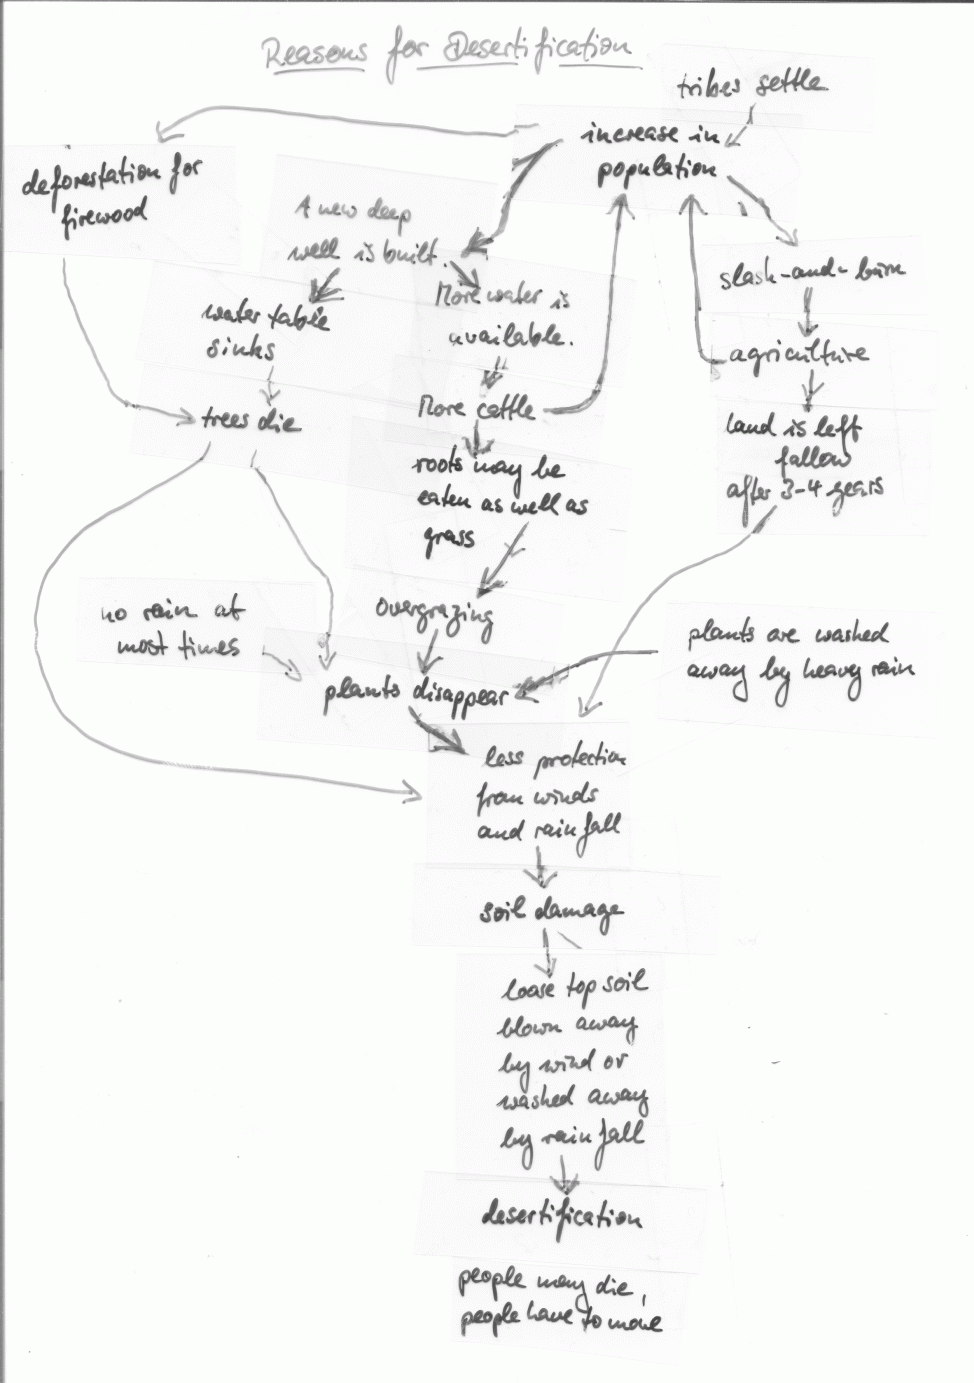 Reasons for Desertification
tribes settle
increase in
population
deforestation for
firewood
A new deep
well is built.
slash-and-burn
More water is
available.
water table
sinks
agriculture
More cattle
trees die
land is left
fallow
after 3-4 years
roots may be
eaten as well as
grass
overgrazing
no rain at
most times
plants are washed
away by heavy rain
plants disappear
less protection
from winds
and rainfall
soil damage
loose top soil
blown away
by wind or
washed away
by rainfall
desertification
people may die,
people have to move